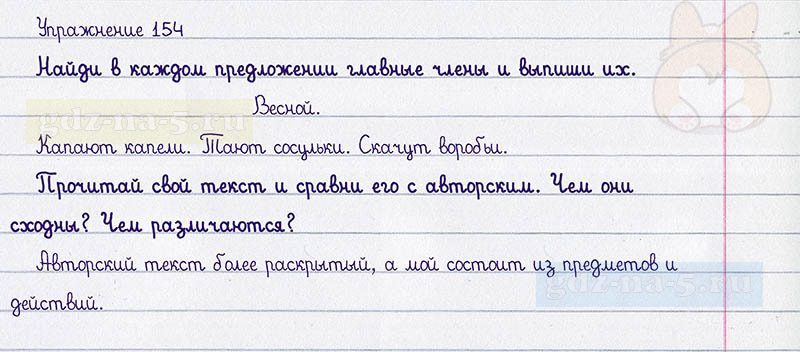 Упражнение 154
Найди в каждом предложении главные члены и выпиши их.
Весной.
gdz-na-5.ru
Капают капели. Тают сосульки. Скачут воробьи.
Прочитай свой текст и сравни его с авторским. Чем они
сходны? Чем различаются?
Авторский текст более раскрытый, а мой состоит из предметов и
gdz-na-5.ru
действий.